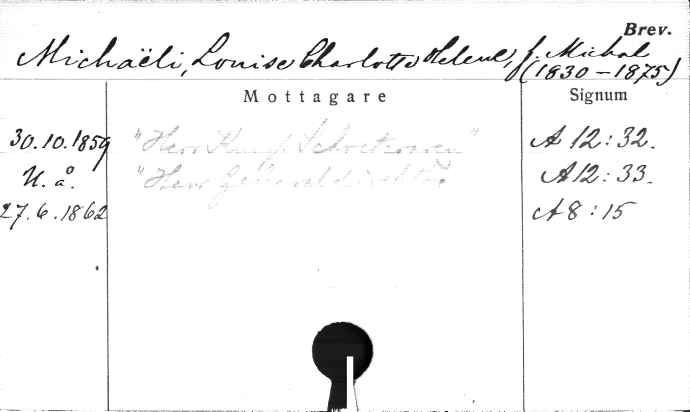 Brev.
Michaëli, Louise Charlotte Helene, f. Michal
(1830-1875)
Mottagare Signum
30.10.1859 "Herr Kungl. Sekreteraren" A 12:32.
U. å. "Herr Generaldirektör. A12:33.
27.6.1862 A8:15